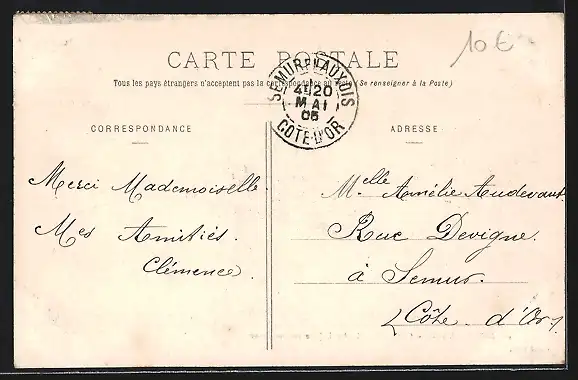 CARTE POSTALE
Tous les pays étrangers n'acceptent pas la correspondance au recto (Se renseigner à la Poste)
10€
SEMUR-EN-AUXOIS
4E 20
MAI
05
COTE-D'OR
CORRESPONDANCE
ADRESSE
Merci Mademoiselle.
Mes Amitiés.
Clémence.
Melle Amélie Audevant
Rue Devigne.
à Semur.
(Côte d'Or)